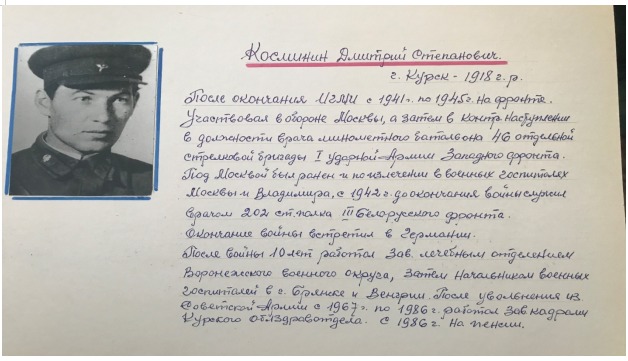 Косминин Дмитрий Степанович.
г. Курск - 1918 г.р.
После окончания ИгМИ с 1941г. по 1945г. На фронте.
Участвовал в обороне Москвы, а затем в контрнаступлении
в должности врача минометного батальона 46 отдельной
стрелковой бригады I ударной Армии Западного фронта.
Под Москвой был ранен и по излечении в военных госпиталях
Москвы и Владимира, с 1942г. до окончания войны служил
врачом 202 ст. полка III Белорусского фронта.
Окончание войны встретил в Германии.
После войны 10 лет работал Зав. лечебным отделением
Воронежского военного округа, затем Начальником военных
госпиталей в г. Брянске и Венгрии. После увольнения из
Советской Армии с 1967г. по 1986г. работал Зав кадрами
Курского облздравотдела. С 1986г. На пенсии.